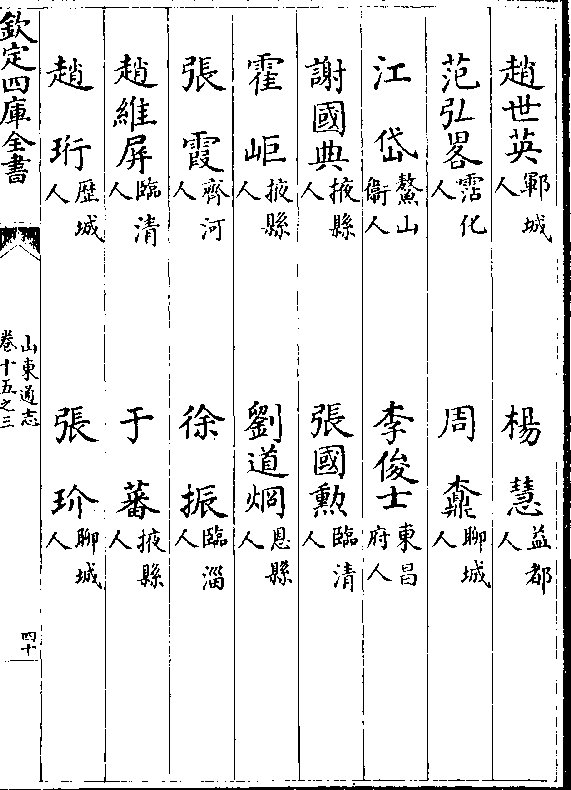 趙世英鄆城人　楊慧益都人
范弘畧霑化人　周鼐聊城人
江岱鰲山衞人　李俊士東昌府人
謝國典掖縣人　張國勲臨清人
霍岠掖縣人　劉道烱恩縣人
張霞齊河人　徐振臨淄人
趙維屏臨清人　于蕃掖縣人
趙珩歴城人　張玠聊城人
欽定四庫全書
山東通志
卷十五之三
四十